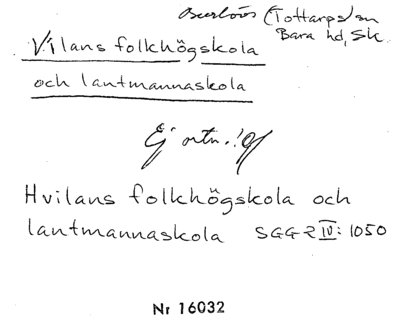 Burlövs (Tottarps) sn
Bara hd, Sk.
Vilans folkhögskola
och lantmannaskola
Ej ortn.!
Hvilans folkhögskola och
lantmannaskola SGG 2 IV: 1050
Nr 16032